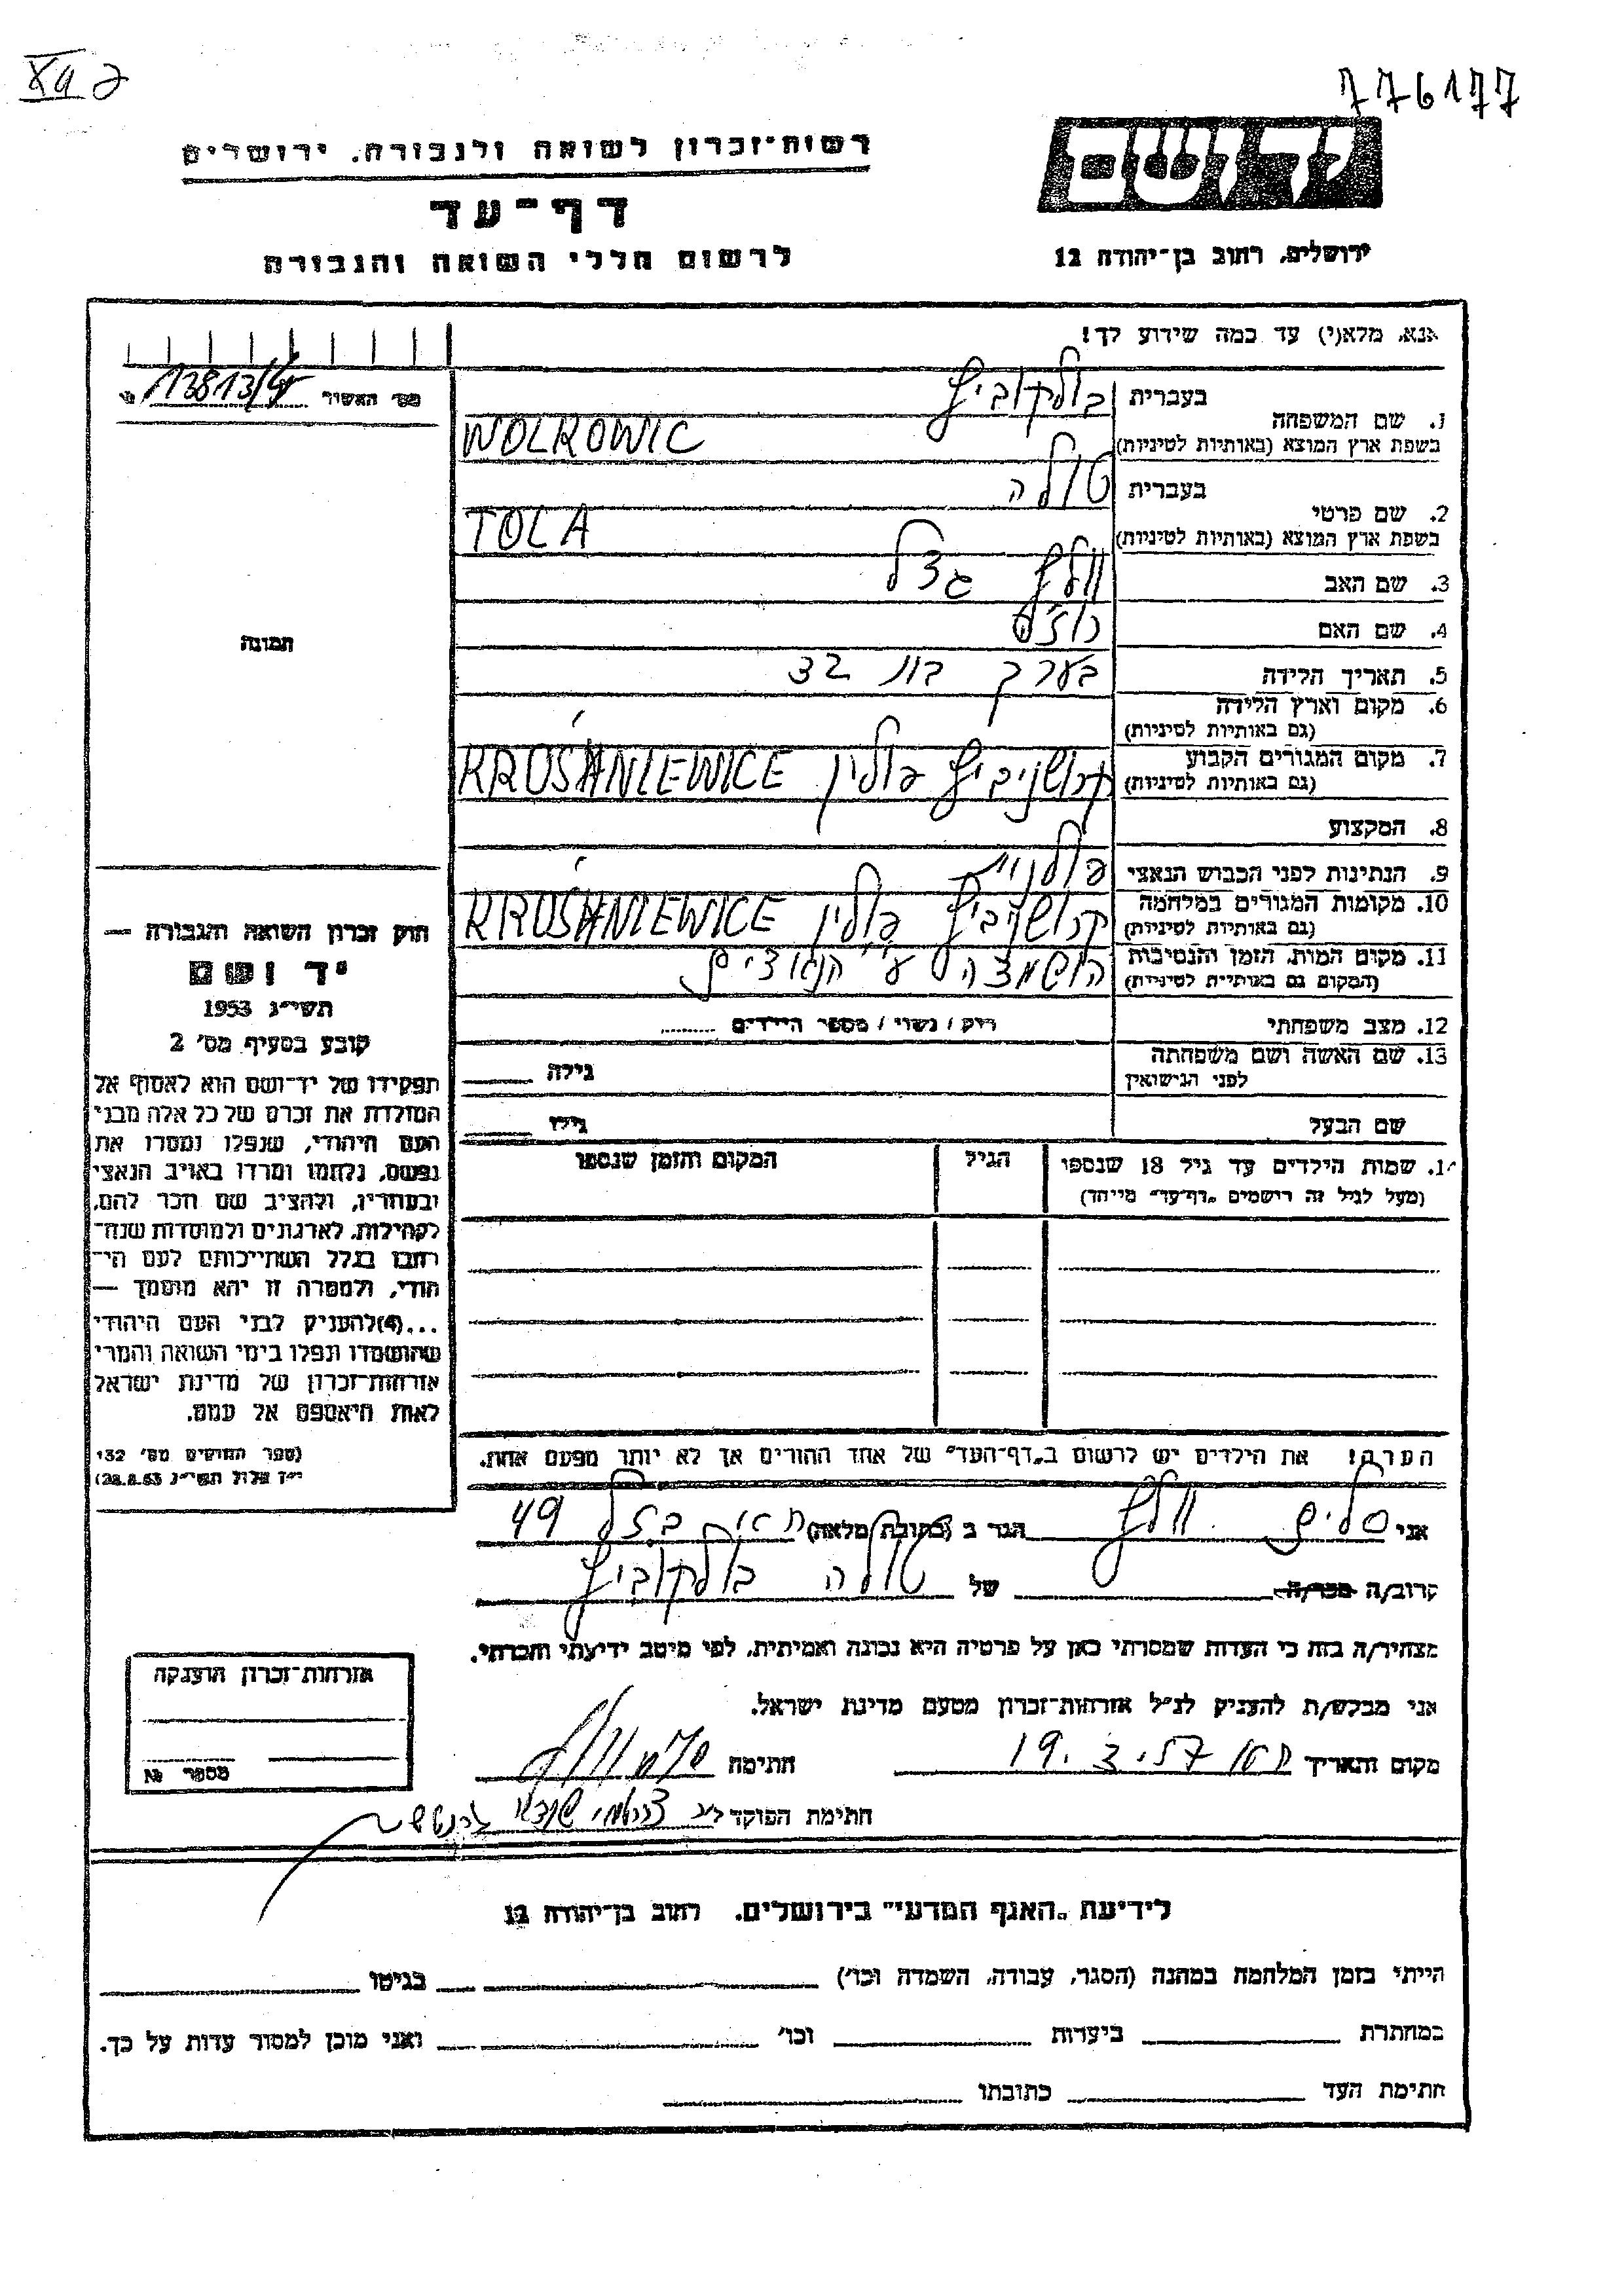 776177
רשות־זכרון לשואה ולגבורה, ירושלים
דף־עד
לרשום חללי השואה והגבורה
יד ושם
ירושלים, רחוב בן־יהודה 12
אנא, מלא(י) עד כמה שידוע לך!
מס' האשיר 13813/45
תמונה
1. שם המשפחה
בעברית וולקוביץ
בשפת ארץ המוצא (באותיות לטיניות) WOLKOWIC
2. שם פרטי
בעברית טולה
בשפת ארץ המוצא (באותיות לטיניות) TOLA
3. שם האב וולף געצל
4. שם האם
5. תאריך הלידה בערך בת 32
6. מקום וארץ הלידה
(גם באותיות לטיניות)
7. מקום המגורים הקבוע
(גם באותיות לטיניות) קרושניביץ פולין KROŚNIEWICE
8. המקצוע
9. הנתינות לפני הכבוש הנאצי פולנית
10. מקומות המגורים במלחמה
(גם באותיות לטיניות) קרושניביץ פולין KROŚNIEWICE
11. מקום המות, הזמן והנסיבות
(המקום גם באותיות לטיניות) הושמדה ע"י הנאצים
12. מצב משפחתי רוק / נשוי / מספר הילדים
13. שם האשה ושם משפחתה
לפני הנישואין גילה
שם הבעל גילו
14. שמות הילדים עד גיל 18 שנספו
(מעל לגיל זה רישמים „דף־עד" מייחד)
הגיל
המקום והזמן שנספו
הערה! את הילדים יש לרשום ב„דף־העד" של אחד ההורים אך לא יותר מפעם אחת.
חוק זכרון השואה והגבורה —
יד ושם
תשי"ג 1953
קובע בסעיף מס' 2
תפקידו של יד־ושם הוא לאסוף אל
המולדת את זכרם של כל אלה מבני
העם היהודי, שנפלו ומסרו את
נפשם, נלחמו ומרדו באויב הנאצי
ובעוזריו, ולהציב שם וזכר להם,
לקהילות, לארגונים ולמוסדות שנח־
רבו בגלל השתייכותם לעם הי־
הודי, ולמטרה זו יהא מוסמך —
...(4)להעניק לבני העם היהודי
שהושמדו ונפלו בימי השואה והמרי
אזרחות־זכרון של מדינת ישראל
לאות היאספם אל עמם.
(ספר החוקים מס' 132
י"ז אלול תשי"ג 28.8.53)
אני וולף הגר ב (כתובת מלאה) 49
קרוב/ה מכר/ה של טולה וולקוביץ
מצהיר/ה בזה כי העדות שמסרתי כאן על פרטיה היא נכונה ואמיתית, לפי מיטב ידיעתי והכרתי.
אני מבקש/ת להעניק לנ"ל אזרחות־זכרון מטעם מדינת ישראל.
מקום ותאריך 19.3.57 חתימה
חתימת הפוקד
אזרחות־זכרון הוענקה
מספר №
לידיעת „האגף המדעי" בירושלים, רחוב בן־יהודה 12
הייתי בזמן המלחמה במחנה (הסגר, עבודה, השמדה וכו') בגיטו
במחתרת ביערות וכו' ואני מוכן למסור עדות על כך.
חתימת העד כתובתו